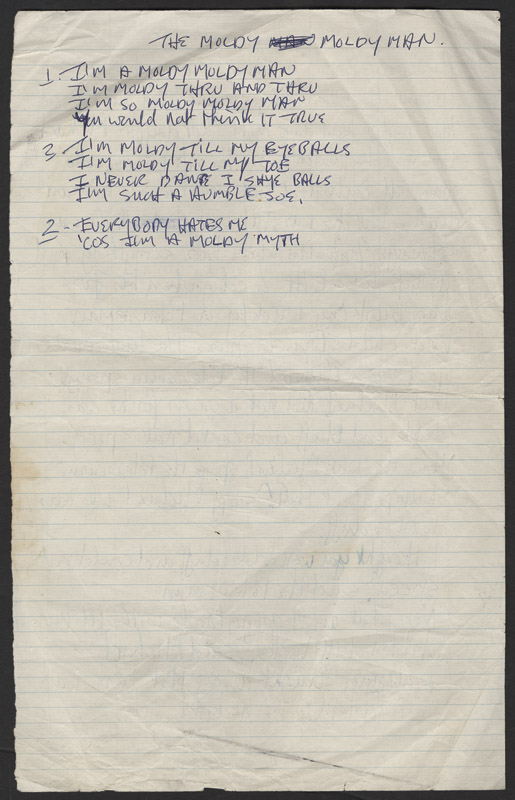 THE MOLDY MOLDY MAN.
1. I'M A MOLDY MOLDY MAN
I'M MOLDY THRU AND THRU
I'M SO MOLDY MOLDY MAN
You would not think IT TRUE
3. I'M MOLDY TILL MY EYEBALLS
I'M MOLDY TILL MY TOE
I NEVER DANCE I SHYE BALLS
I'M SUCH A HUMBLE JOE.
2 - EVERYBODY HATES ME
'COS I'M A MOLDY MYTH